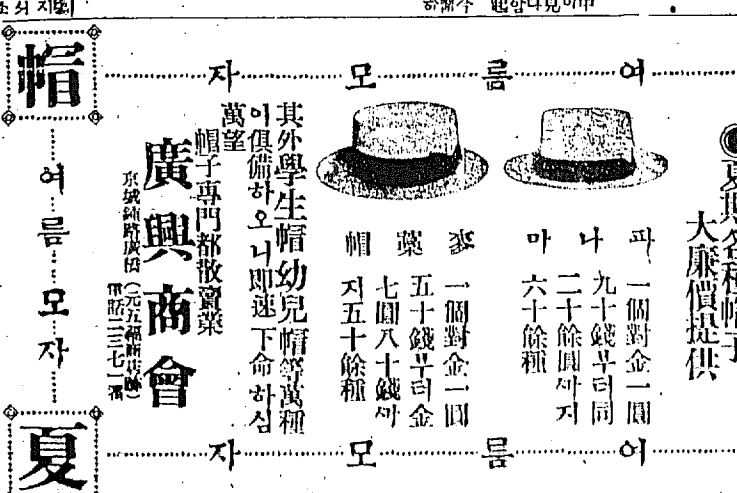 여름모자
夏期各種帽子
大廉價提供
파나마
一個對金一圓
九十錢부터同
二十餘圓ᄭᅡ지
六十餘種
麥藁帽
一個對金一圓
五十錢부터金
七圓八十錢ᄭᅡ
지五十餘種
其外學生帽幼兒帽等萬種
이俱備하오니即速下命하심
萬望
帽子專門都散賣業
廣興商會
京城鍾路廣橋(元五福商店跡)
電話二三七一番
帽
여름모자
夏
여름모자